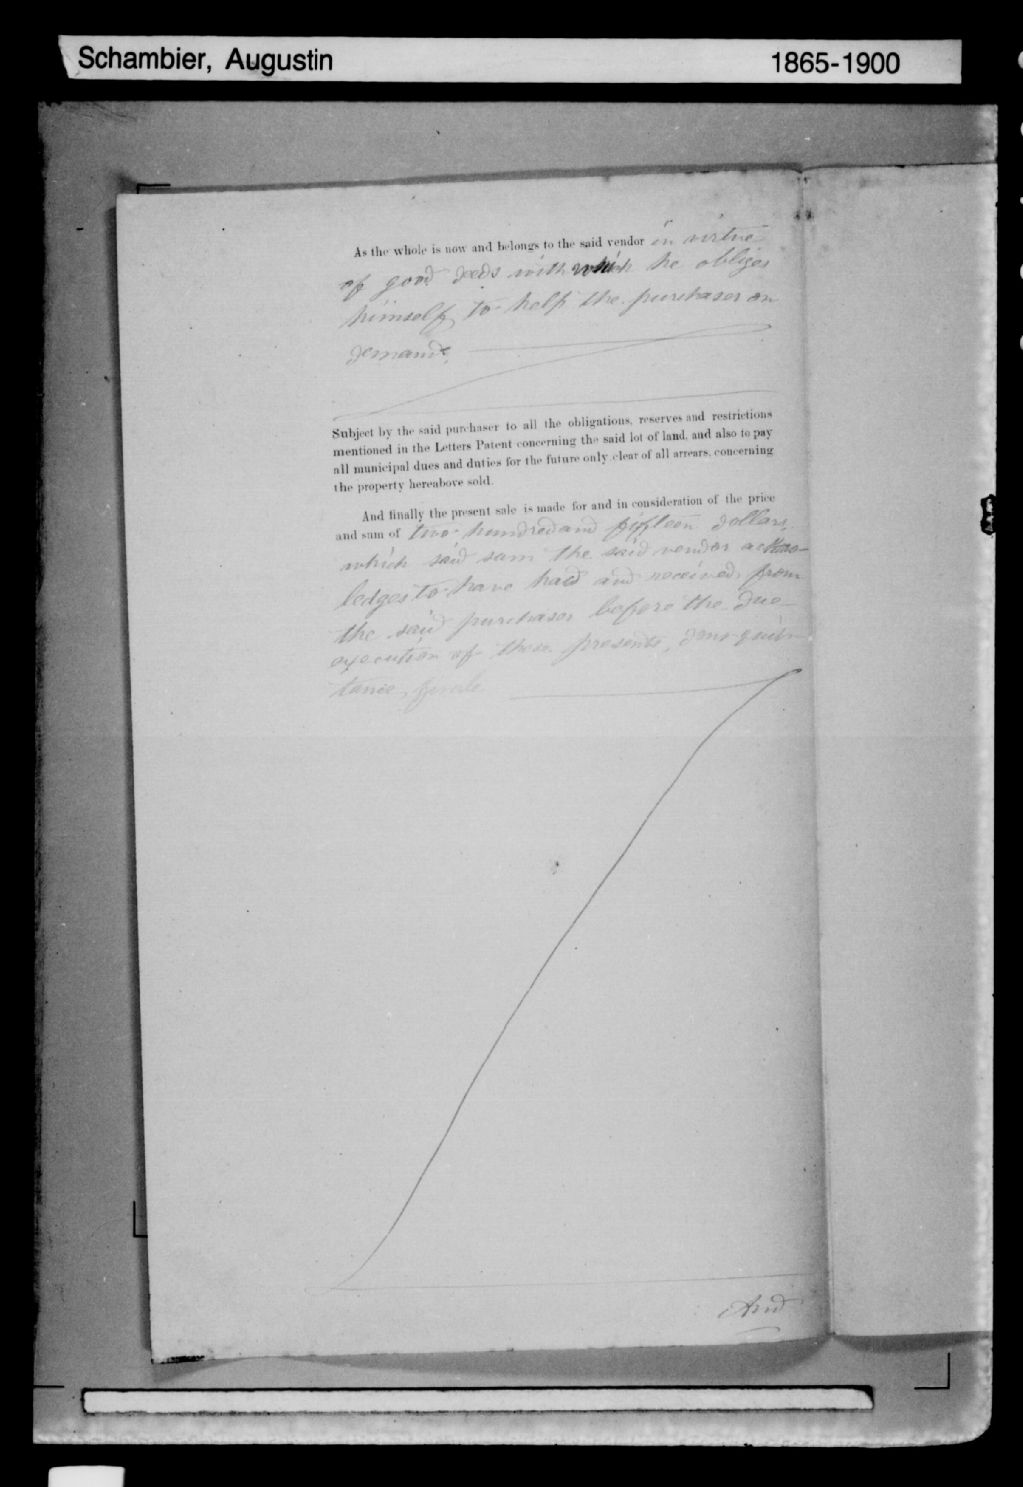 Schambier, Augustin
1865-1900
As the whole is now and belongs to the said vendor in virtue
of good deeds with which he obliges
himself to help the purchaser on
demand.
Subject by the said purchaser to all the obligations, reserves and restrictions
mentioned in the Letters Patent concerning the said lot of land, and also to pay
all municipal dues and duties for the future only clear of all arrears, concerning
the property hereabove sold.
And finally the present sale is made for and in consideration of the price
and sum of two hundred and fifteen dollars,
which said sum the said vendor acknow-
ledges to have had and received from
the said purchaser before the due
execution of these presents,
tance
And